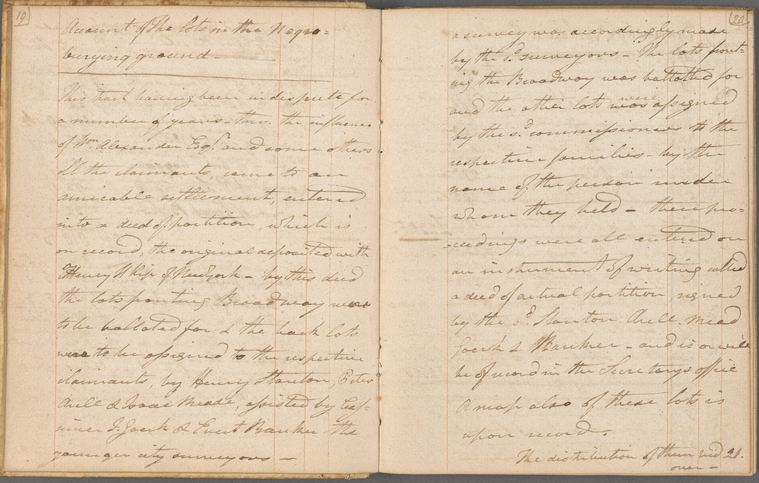 19
Account of the lots in the Negro-
burying ground
This tract having been in dispute for
a number of years - thro. the influence
of Wm. Alexander Esqr. and some others
all the claimants, came to an
amicable settlement, entered
into a deed of partition, which is
on record, the original deposited with
Henry H Kip of Newyork - by this deed
the lots fronting Broadway were
to be ballated for & the back lots
were to be assigned to the respective
claimants, by Henry Stanton, Peter
Aull & Isaac Meade, assisted by
& Evert Banker the
younger city surveyors -
20
a survey was accordingly made
by the sd. surveyors - The lots front-
ing the Broadway was ballatted for
and the other lots were assigned
by the sd. commissioners to the
respective families - by the
name of the person under
whom they held - these pro-
ceedings were all entered on
an instrument of writing called
a deed of actual partition, signed
by the sd. Stanton Aull. Mead
& Banker - and is or will
be of record in the Secretarys office
A map also of these lots is
upon record.
The distribution of them vid 21.
over -